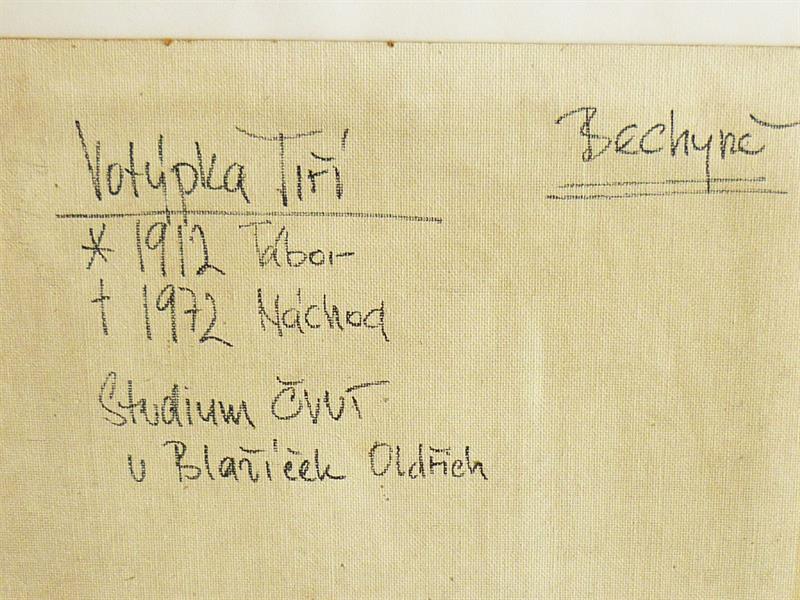 Votýpka Jiří
* 1912 Tábor
† 1972 Náchod
Studium ČVUT
u Blažíček Oldřich
Bechyně